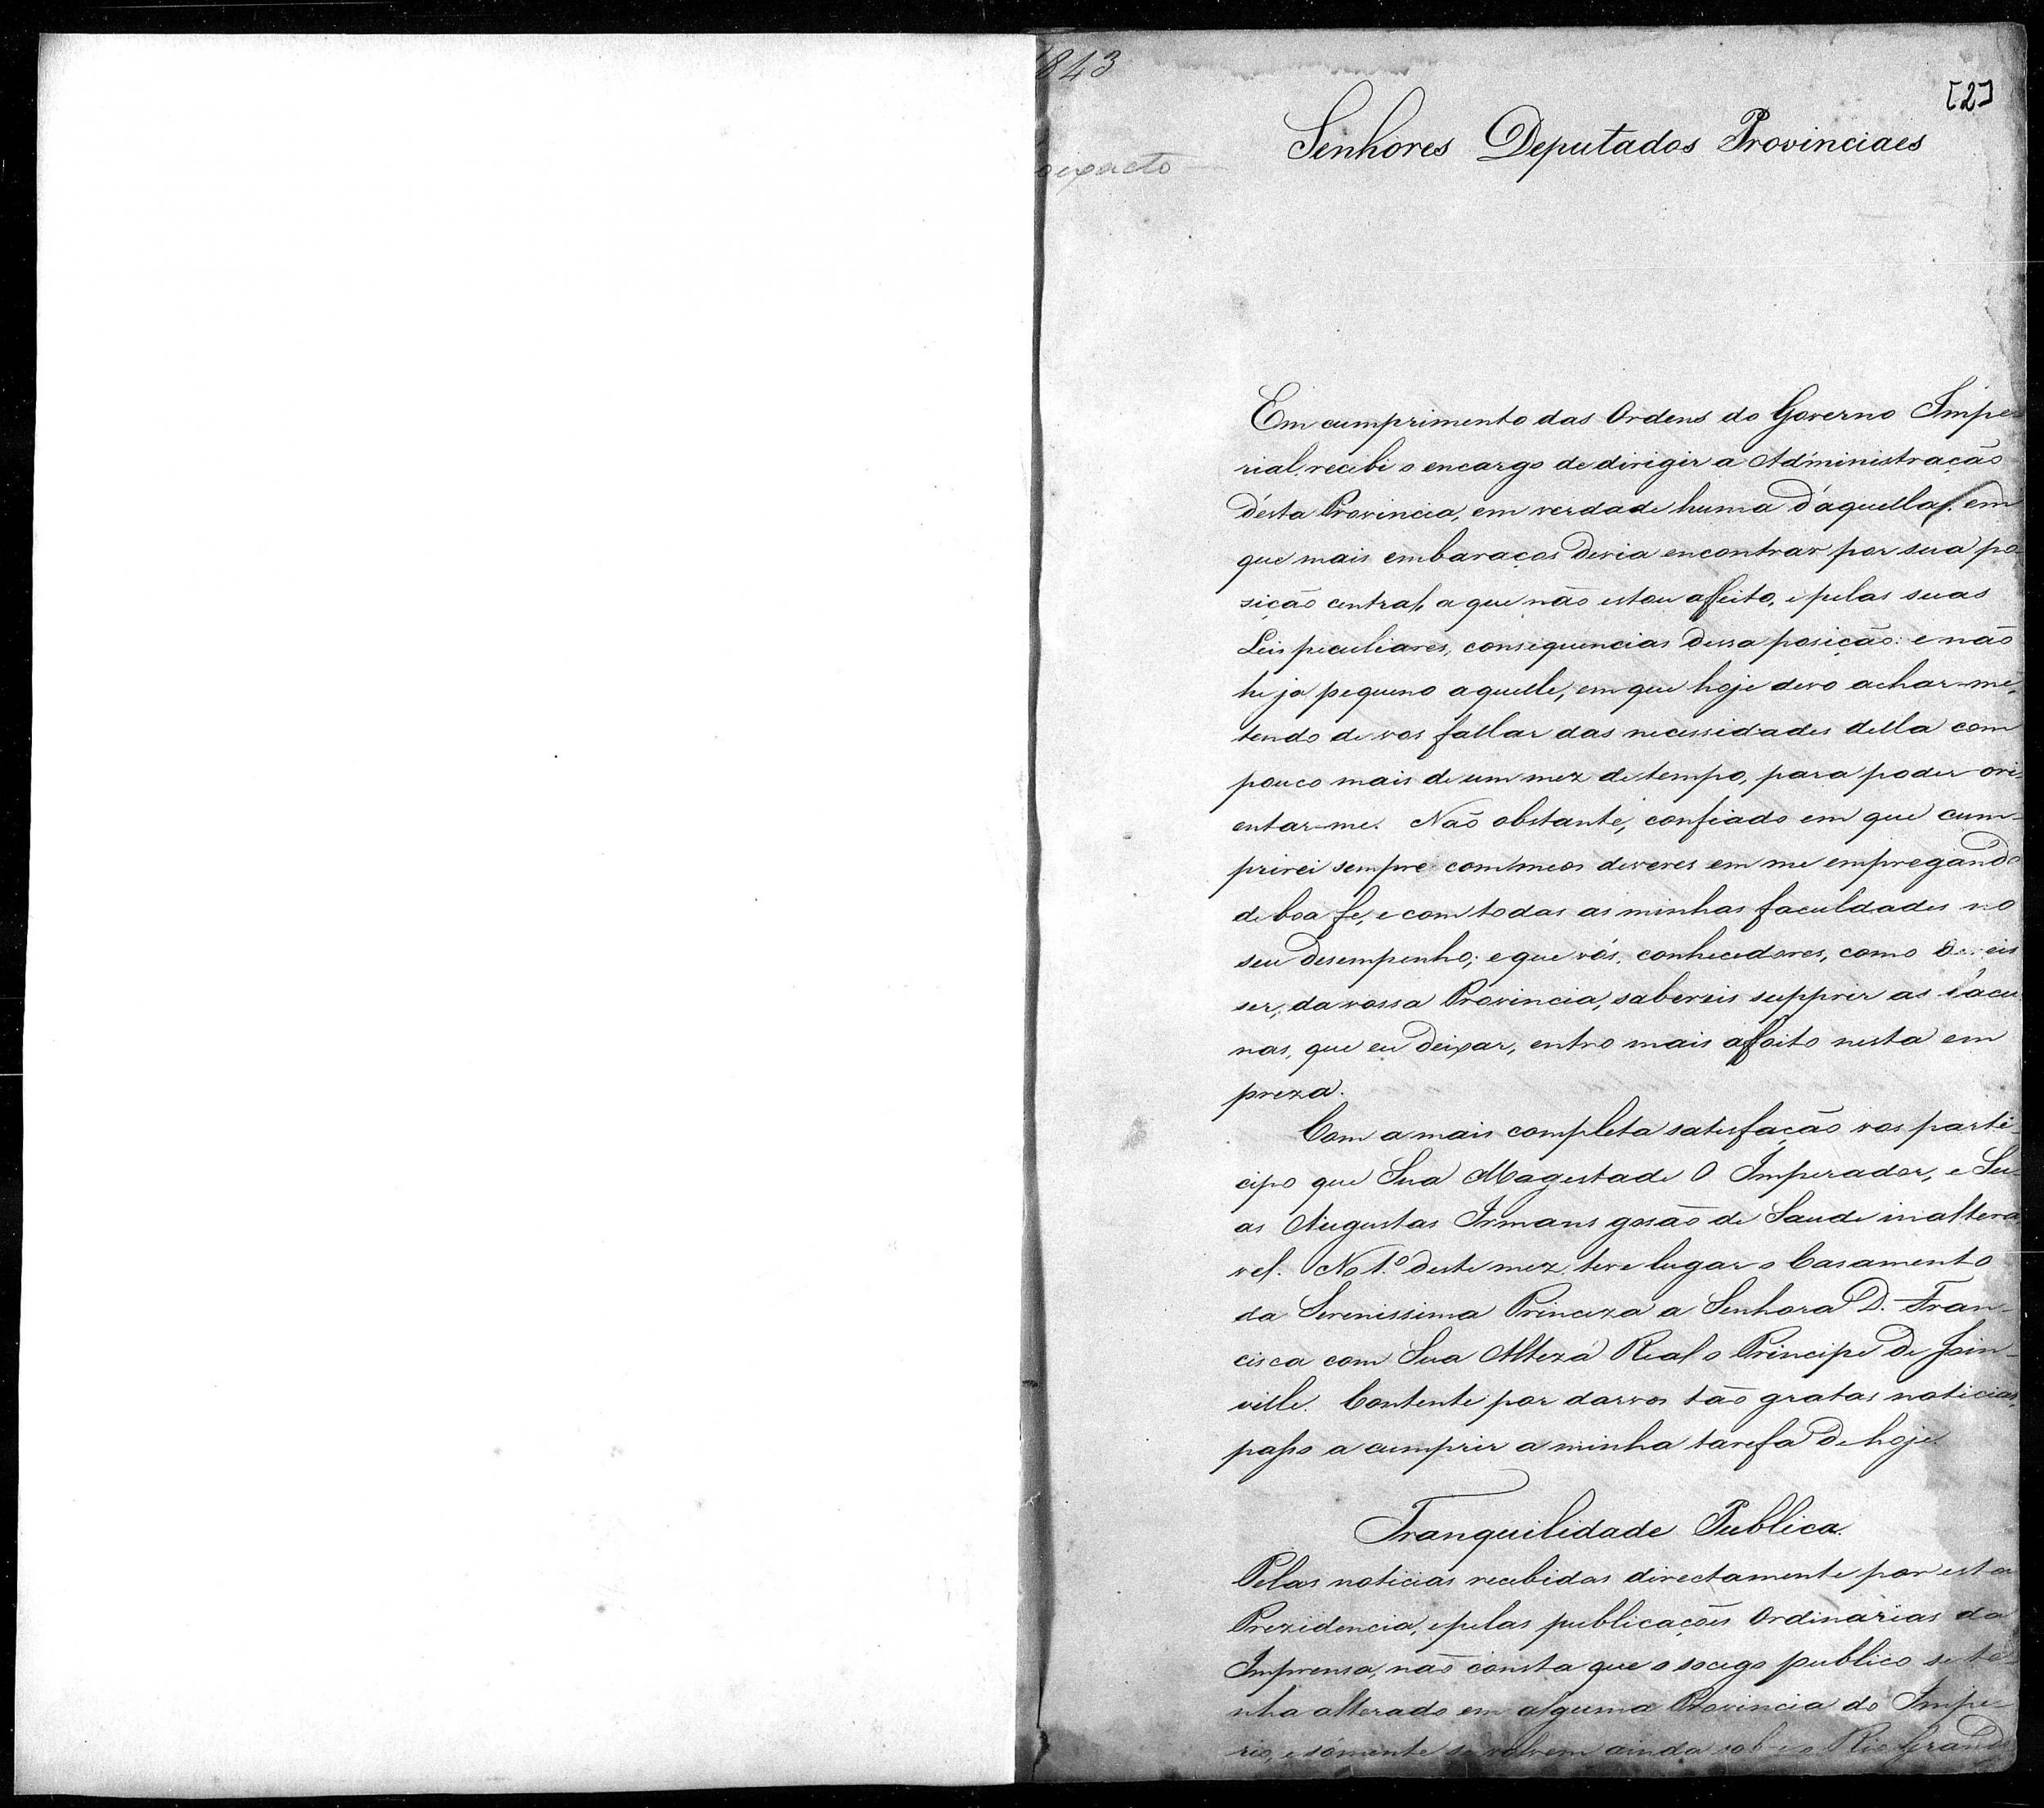 1843
[2]
Senhores Deputados Provinciaes
exacto
Em cumprimento das Ordens do Governo Impe-
rial, recebi o encargo de dirigir a Administração
d'esta Provincia, em verdade huma d'aquellas em
que mais embaraços devia encontrar por sua po-
sição central, a que não estou affeito, e pelas suas
Leis peculiares, consequencias dessa posição: e não
he já pequeno aquelle, em que hoje devo achar-me,
tendo de vos fallar das necessidades della com
pouco mais de um mez de tempo, para poder ori-
entar-me. Não obstante, confiado em que cum-
prirei sempre com meos deveres em me empregando
de boa fe, e com todas as minhas faculdades no
seu desempenho; e que vós, conhecedores, como deveis
ser, da vossa Provincia, sabereis supprir as lacu
nas, que eu deixar, entro mais affoito nesta em
preza.
Com a mais completa satisfação vos parti-
cipo que Sua Magestade O Imperador, e Su-
as Augustas Irmans gosão de Saude inaltera
vel. No 1.º deste mez teve lugar o Casamento
da Serenissima Princeza a Senhora D. Fran-
cisca com Sua Alteza Real o Principe de Join-
ville. Contente por darvos tão gratas noticias,
passo a cumprir a minha tarefa de hoje.
Tranquilidade Publica.
Pelas noticias recebidas directamente por esta
Prezidencia, e pelas publicações Ordinarias da
Imprensa, não consta que o socego publico se te
nha alterado em alguma Provincia do Impe-
rio, e sómente se volvem ainda sobre o Rio Grande